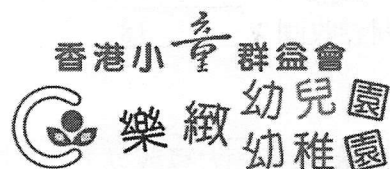 香港小童群益會
樂緻幼兒園
幼稚園